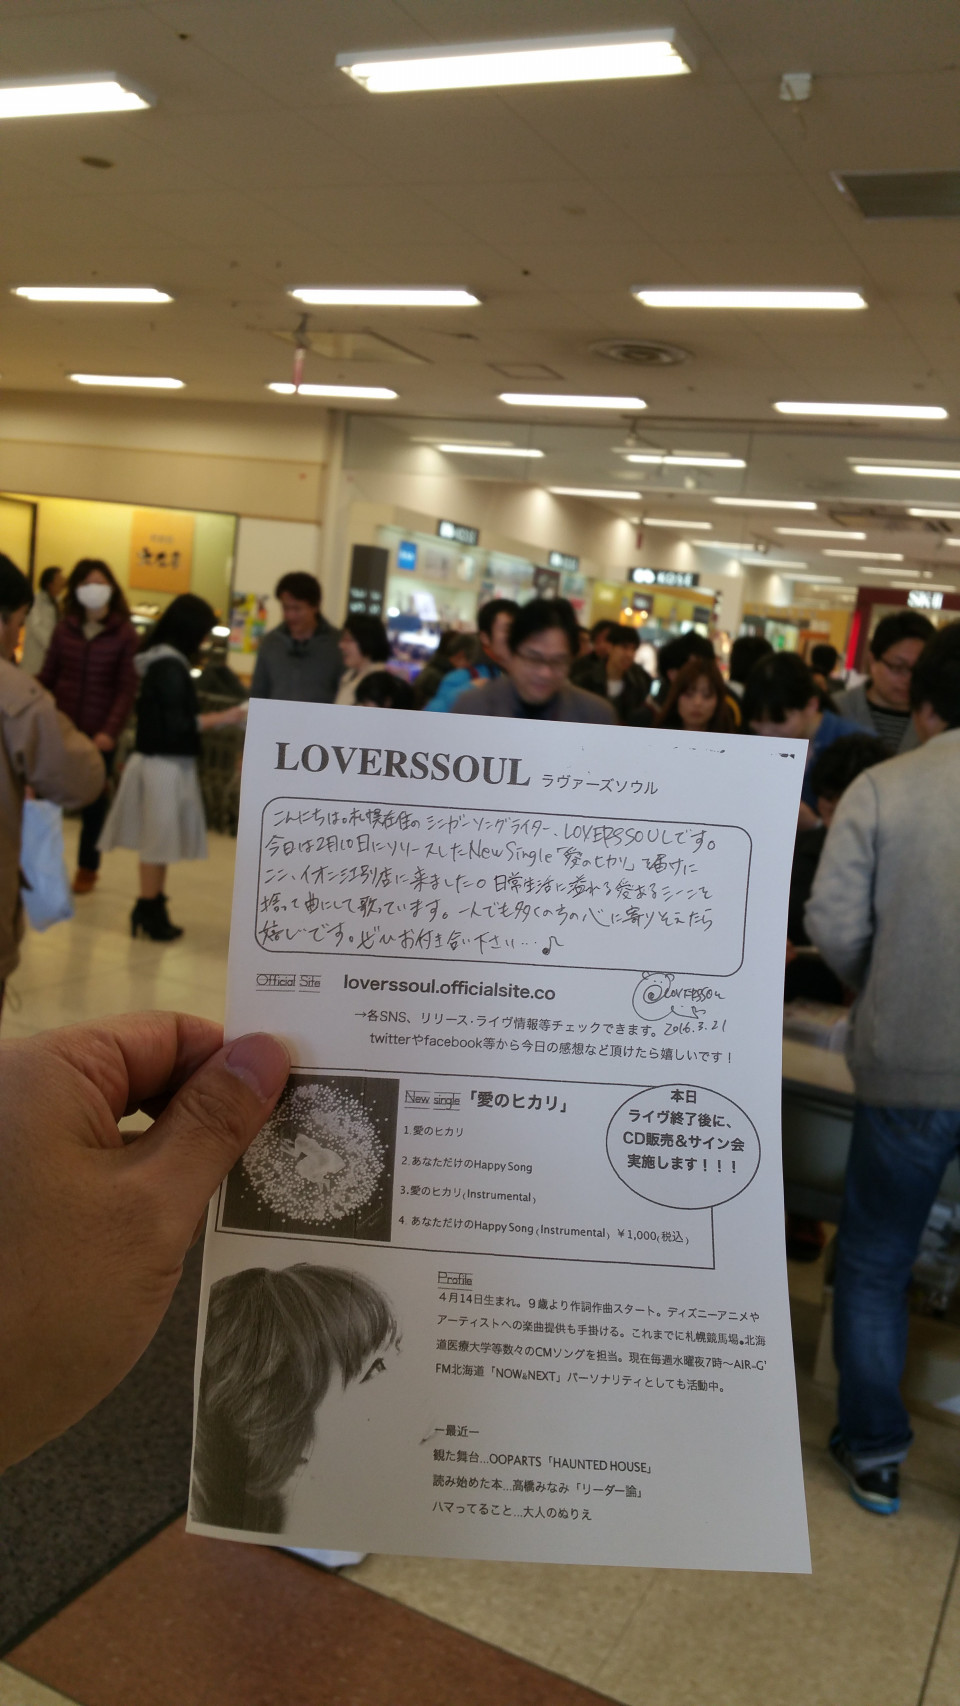 KOSÉ
LOVERSSOUL ラヴァーズソウル
こんにちは。札幌在住のシンガーソングライター、LOVERSSOULです。
今日は2月10日にリリースしたNew Single「愛のヒカリ」を届けに
ここ、イオン江別店に来ました。日常生活に溢れる愛あるシーンを
拾って曲にして歌っています。一人でも多くの方の心に寄りそえたら
嬉しいです。ぜひお付き合い下さい…♪
Official Site loverssoul.officialsite.co
LOVERSSOUL
2016.3.21
→各SNS、リリース・ライヴ情報等チェックできます。
twitterやfacebook等から今日の感想など頂けたら嬉しいです！
New single「愛のヒカリ」
1.愛のヒカリ
2.あなただけのHappy Song
3.愛のヒカリ(Instrumental)
4.あなただけのHappy Song(Instrumental) ￥1,000(税込)
本日
ライヴ終了後に、
CD販売&サイン会
実施します！！！
Profile
４月14日生まれ。９歳より作詞作曲スタート。ディズニーアニメや
アーティストへの楽曲提供も手掛ける。これまでに札幌競馬場、北海
道医療大学等数々のCMソングを担当。現在毎週水曜夜7時〜AIR-G'
FM北海道「NOW&NEXT」パーソナリティとしても活動中。
ー最近ー
観た舞台…OOPARTS「HAUNTED HOUSE」
読み始めた本…高橋みなみ「リーダー論」
ハマってること…大人のぬりえ